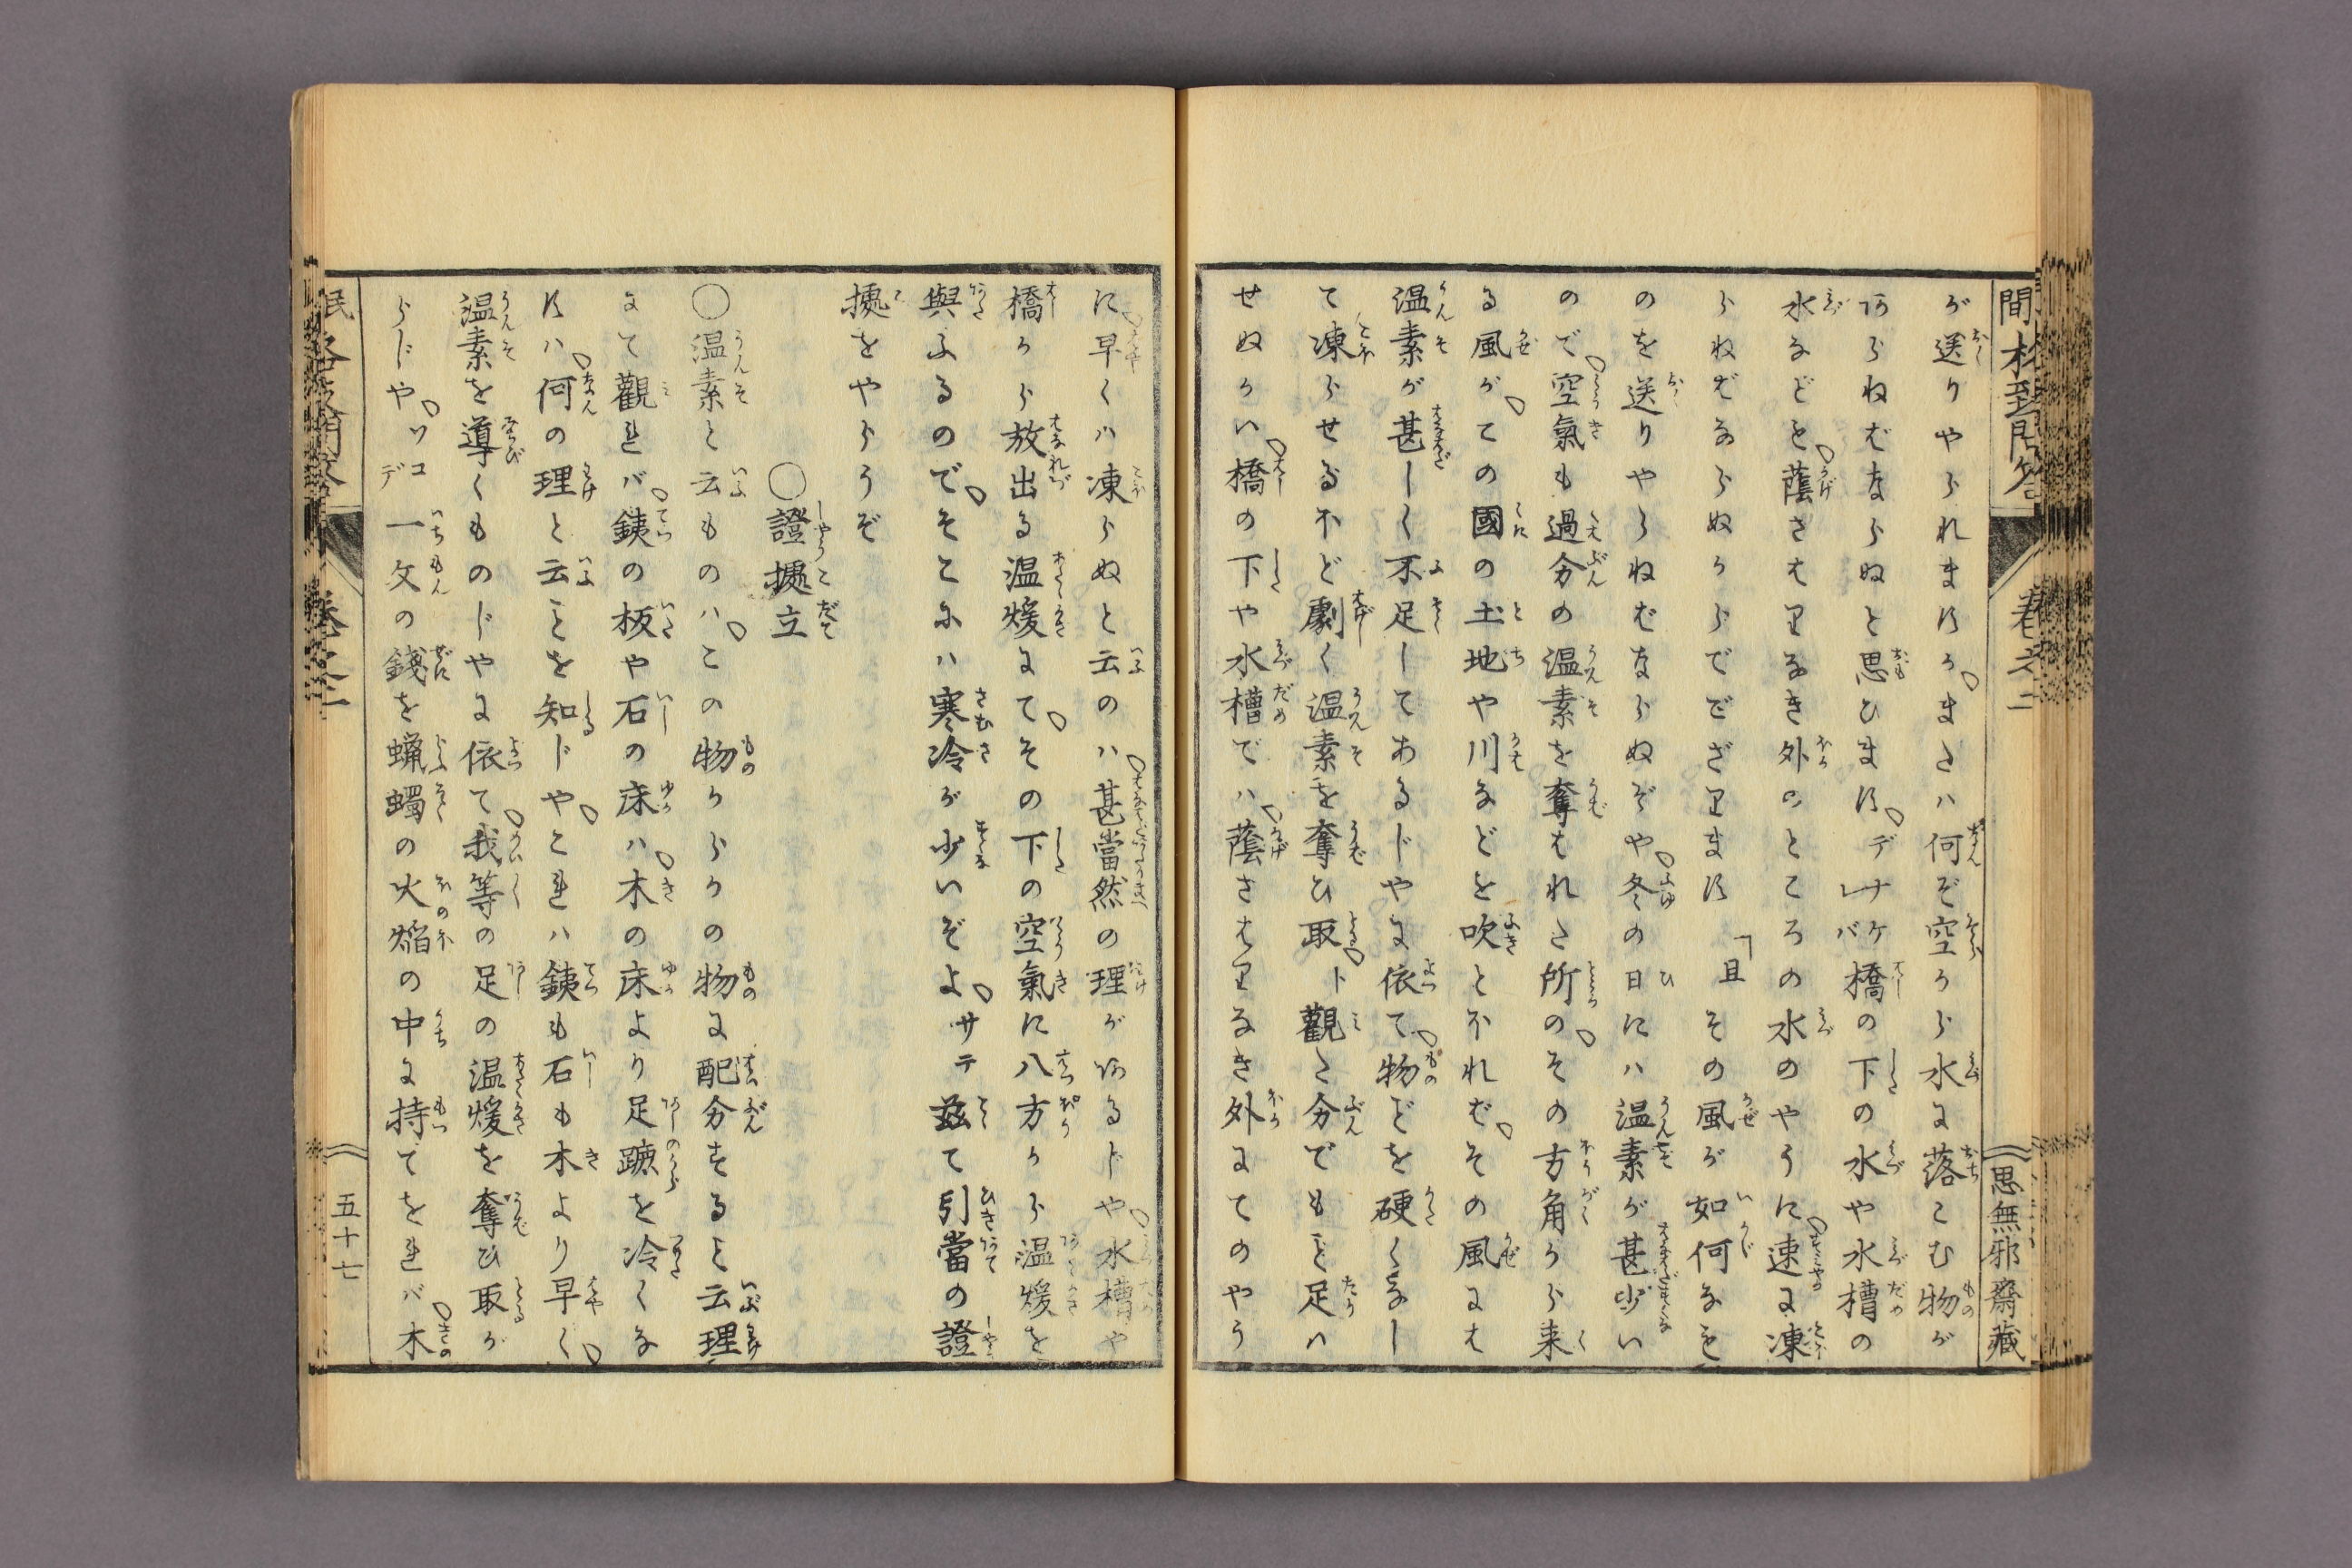 が送りやられますか。または何ぞ空から水に落こむ物が
あらねばならぬと思ひます。デナケレバ橋の下の水や水槽の
水などを。蔭さはりなき外のところの水のやうに。速に凍
らねばならぬからでござります 「且 その風が如何なる
のを送りやらねばならぬぞや。冬の日には温素が甚少い
ので。空氣も過分の温素を奪はれた所の。その方角から来
る風が。その國の土地や川などを吹とほれば。その風には
温素が甚しく不足してあるじやに依て。物どを硬くなし
て凍らせるほど劇く温素を奪ひ取。ト觀た分でもまだ足は
せぬかい。橋の下や水槽では。蔭さはりなき外にてのやう
に。早くは凍らぬと云のは。甚當然の理があるじや。水槽や
橋から放出る温煖にて。その下の空氣に八方から温煖を
與ふるので。そこには寒冷が少いぞよ。サテ茲て引當の證
據をやらうぞ
○證據立
○温素と云ものは。この物からかの物に配分すると云理
にて觀れば。鉄の板や石の床は。木の床より足蹠を冷くな
すは。何の理と云ことを知じや。これは鉄も石も木より早く。
温素を導くものじやに依て。我等の足の温煖を奪ひ取が
らじや。ソコデ一文の錢を蝋蠋の火焰の中に持てをれば。木
間格致問答
卷之二
思無邪齋藏
卷之二
五十七